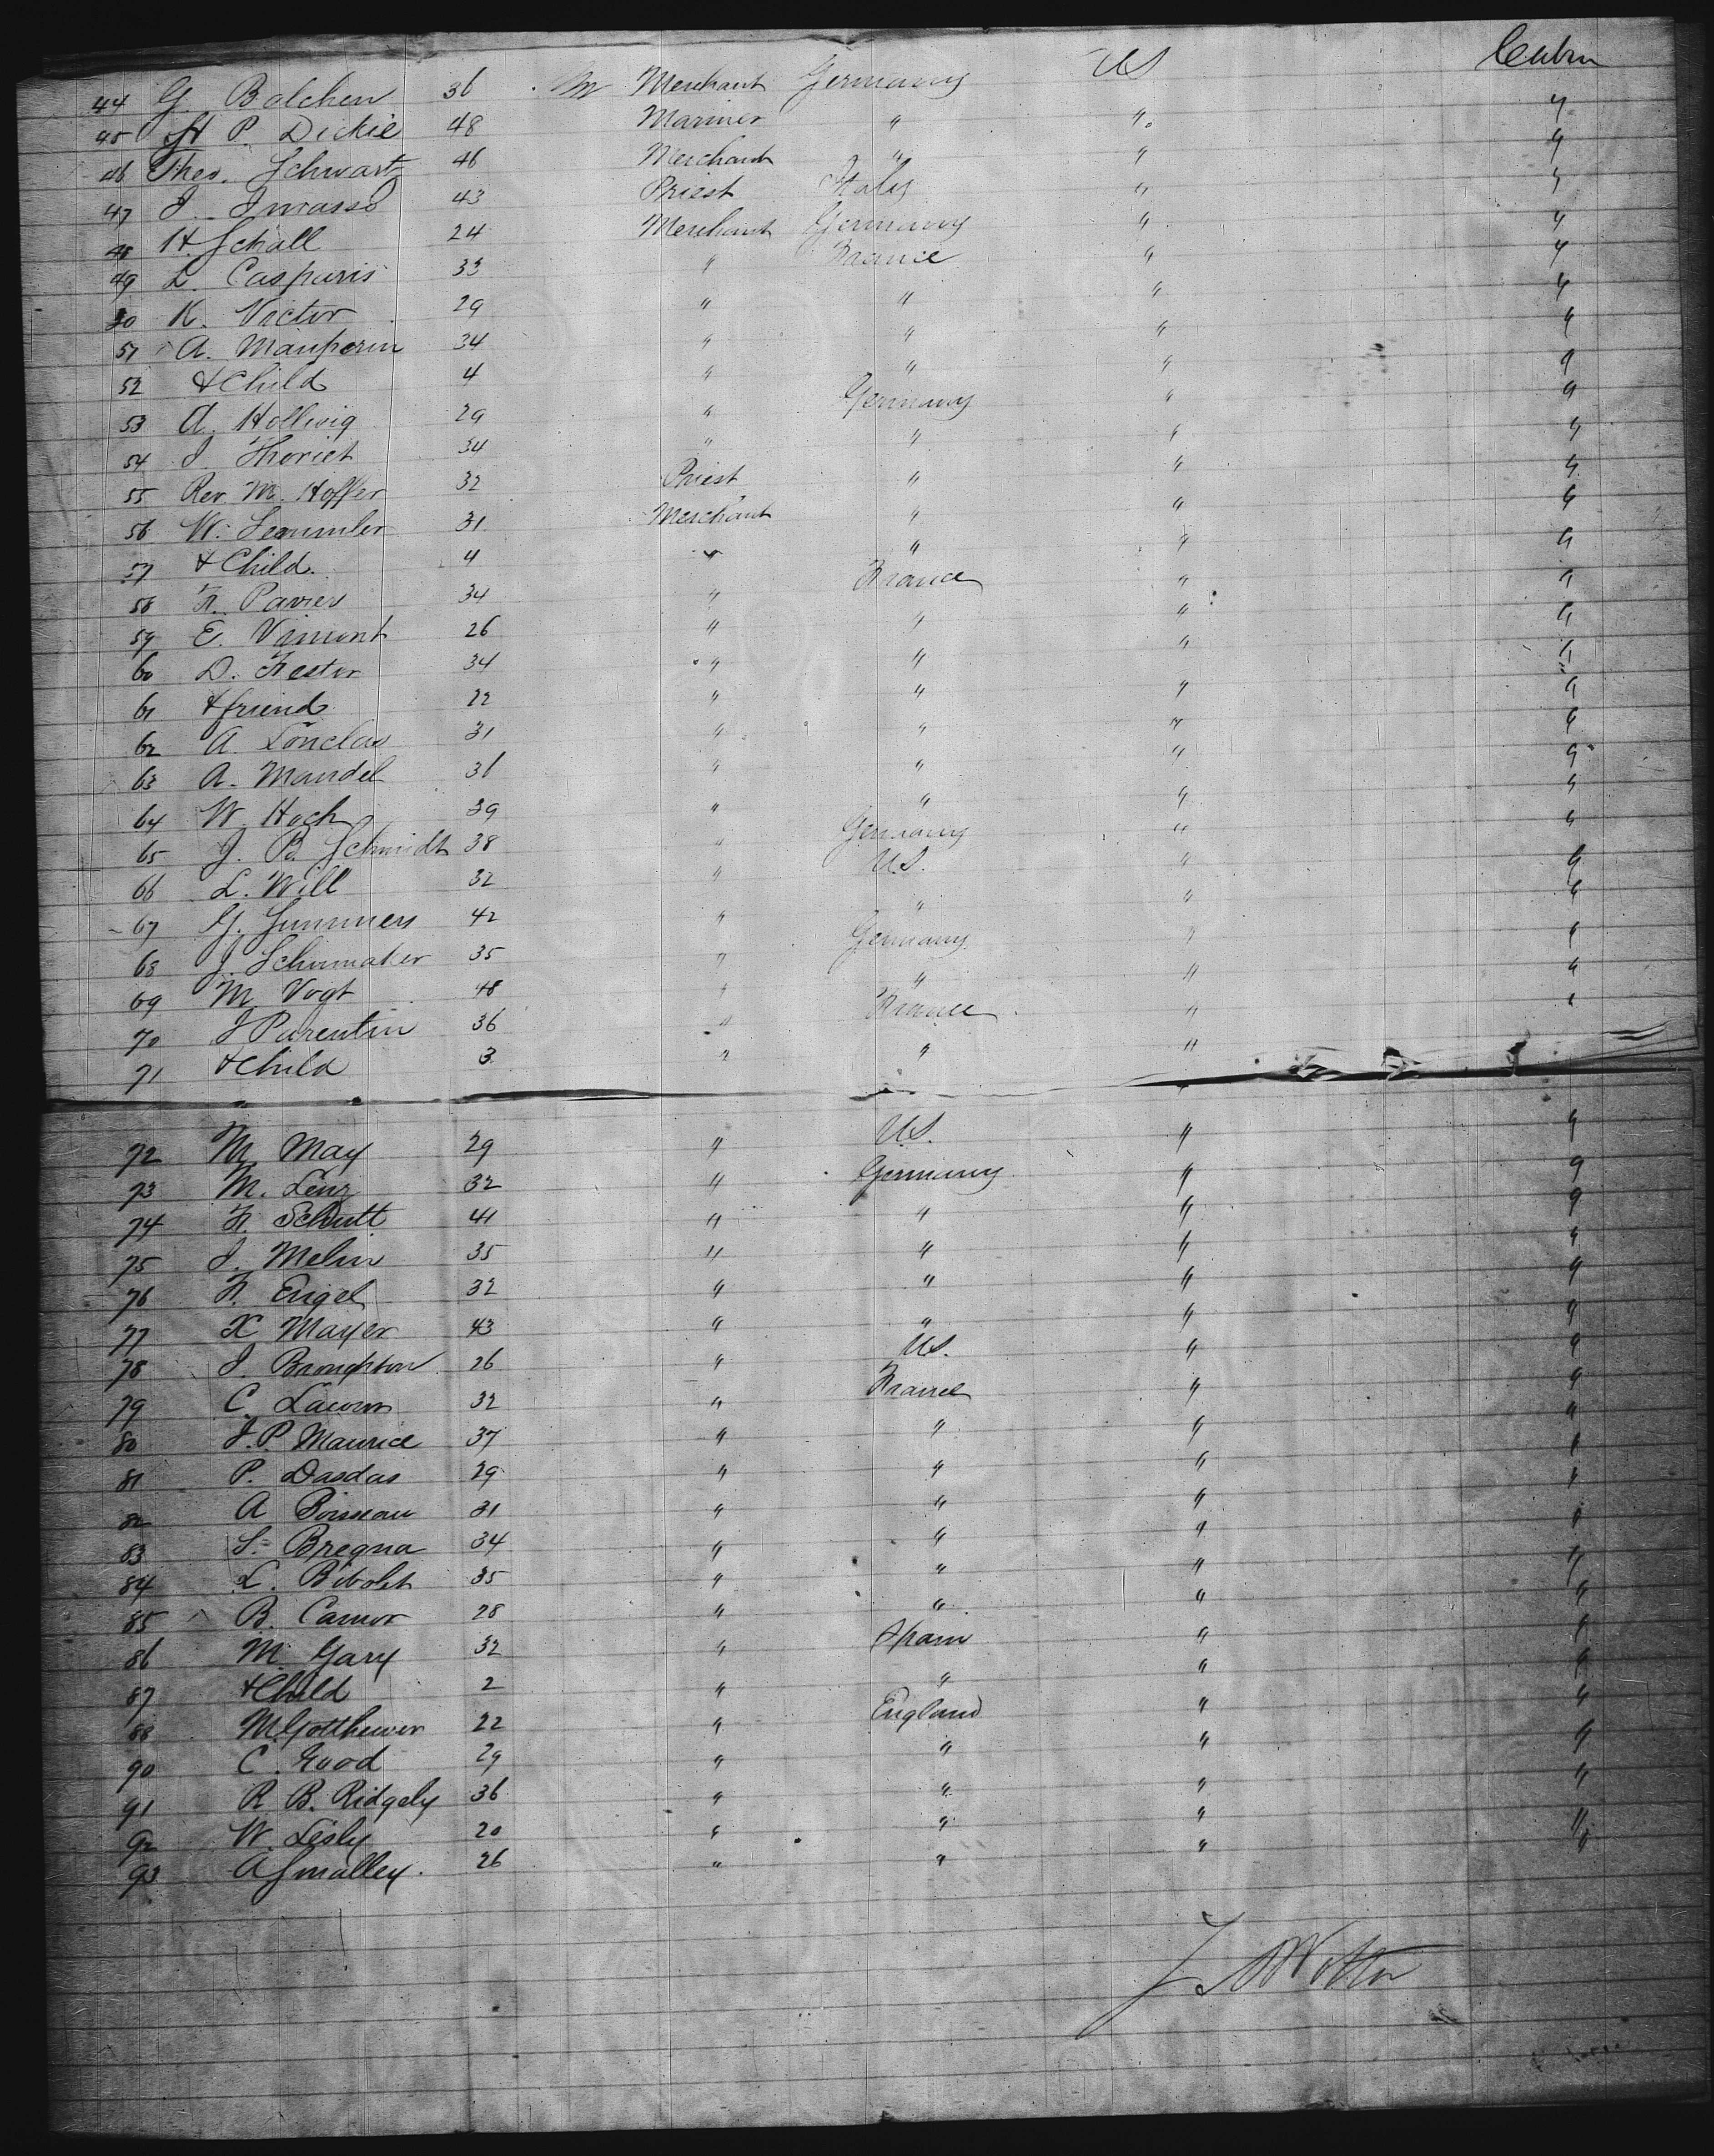 44 G. Bolchen 36 M Merchant Germany US Cabin
45 H P. Dickie 48 Mariner " " "
46 Theo. Schwartz 46 Merchant " " "
47 J. 43 Priest Italy " "
48 H. Schall 24 Merchant Germany " "
49 L. Casparis 33 " France " "
50 K. Victor 29 " " " "
51 A. Mauperin 34 " " " "
52 & Child 4 " " " "
53 A. Hollwig 29 " Germany " "
54 J. Thoriet 34 " " " "
55 Rev. M. Hoffer 32 Priest " " "
56 W. Semmler 31 Merchant " " "
57 & Child 4 " " " "
58 F. Pavier 34 " France " "
59 E. Vimont 26 " " " "
60 D. Festor 34 " " " "
61 & friend 22 " " " "
62 A. Lonclas 31 " " " "
63 A. Mandel 31 " " " "
64 W. Hoch 39 " " " "
65 J. B. Schmidt 38 " Germany " "
66 L. Will 32 " US. " "
67 G. Summers 42 " " " "
68 J. Schumaker 35 " Germany " "
69 M Vogt 48 " " " "
70 J Parentin 36 " France " "
71 & Child 3 " " "
72 M May 29 " US. " "
73 M. Lenz 32 " Germany " "
74 F. Schutt 41 " " " "
75 J. Melin 35 " " " "
76 F. Engel 32 " " " "
77 K Mayer 43 " " " "
78 J. Broughton 26 " US. " "
79 C. 32 " France " "
80 J. P. Maurice 37 " " " "
81 P. Dasdas 29 " " " "
82 A Poisseau 31 " " " "
83 S. Bregna 34 " " " "
84 L. Bibolet 35 " " " "
85 B. Camor 28 " " " "
86 M. Gary 32 " Spain " "
87 & Child 2 " " " "
88 M. 22 " England " "
90 C. Good 29 " " " "
91 R. B. Ridgely 36 " " " "
92 W. Lesly 20 " " " "
93 A Smalley. 26 " " " "
J. W. Wotton